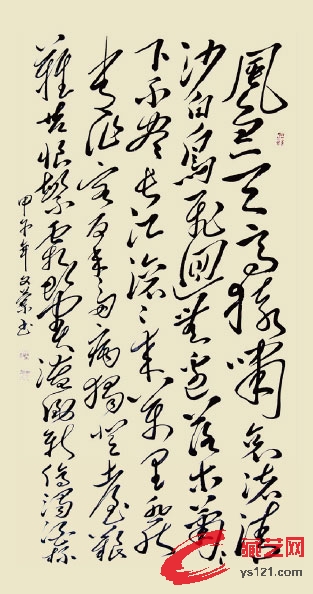 風急天高猿嘯哀渚清
沙白鳥飛迴無邊落木蕭〻
下不盡長江滾〻來萬里悲秋
常作客百年多病獨登臺艱
難苦恨繁霜鬢潦倒新停濁酒杯
甲午年文荣书
藏艺网
ys121.com